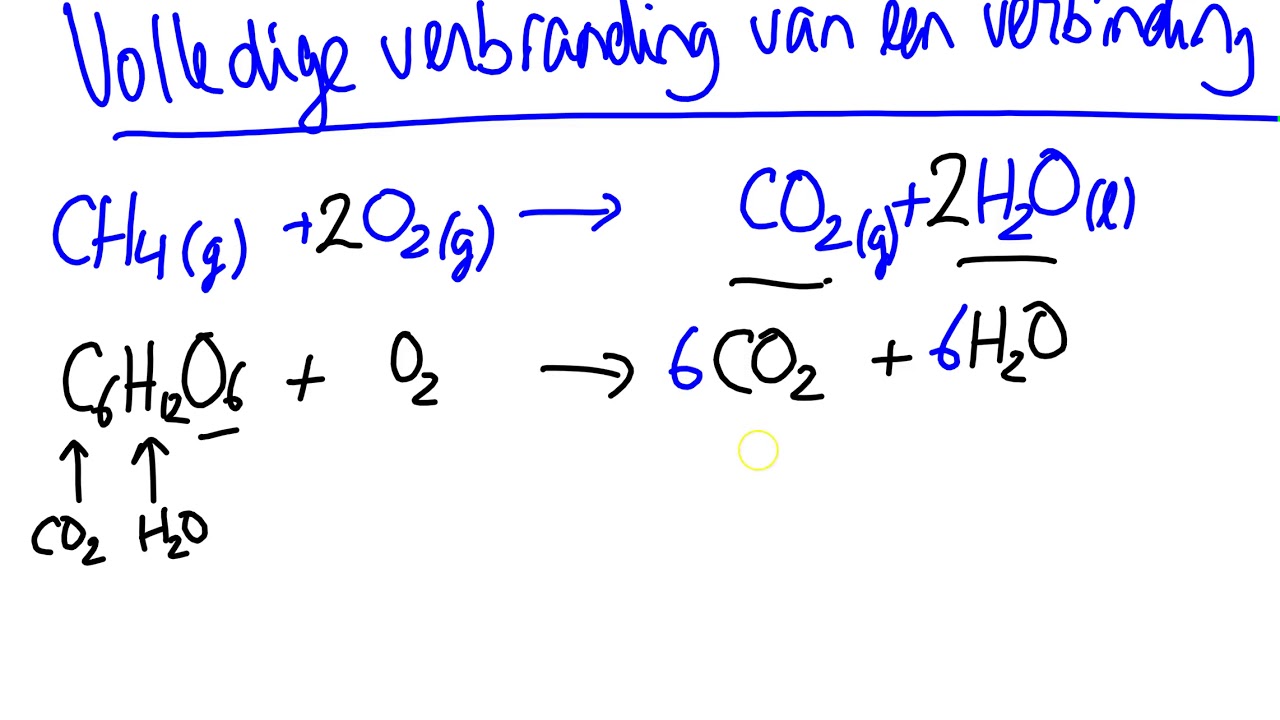 Volledige verbranding van een verbinding
CH4(g) +2O2(g) → CO2(g)+2H2O(l)
C6H12O6 + O2 → 6CO2 + 6H2O
↑ ↑
CO2 H2O